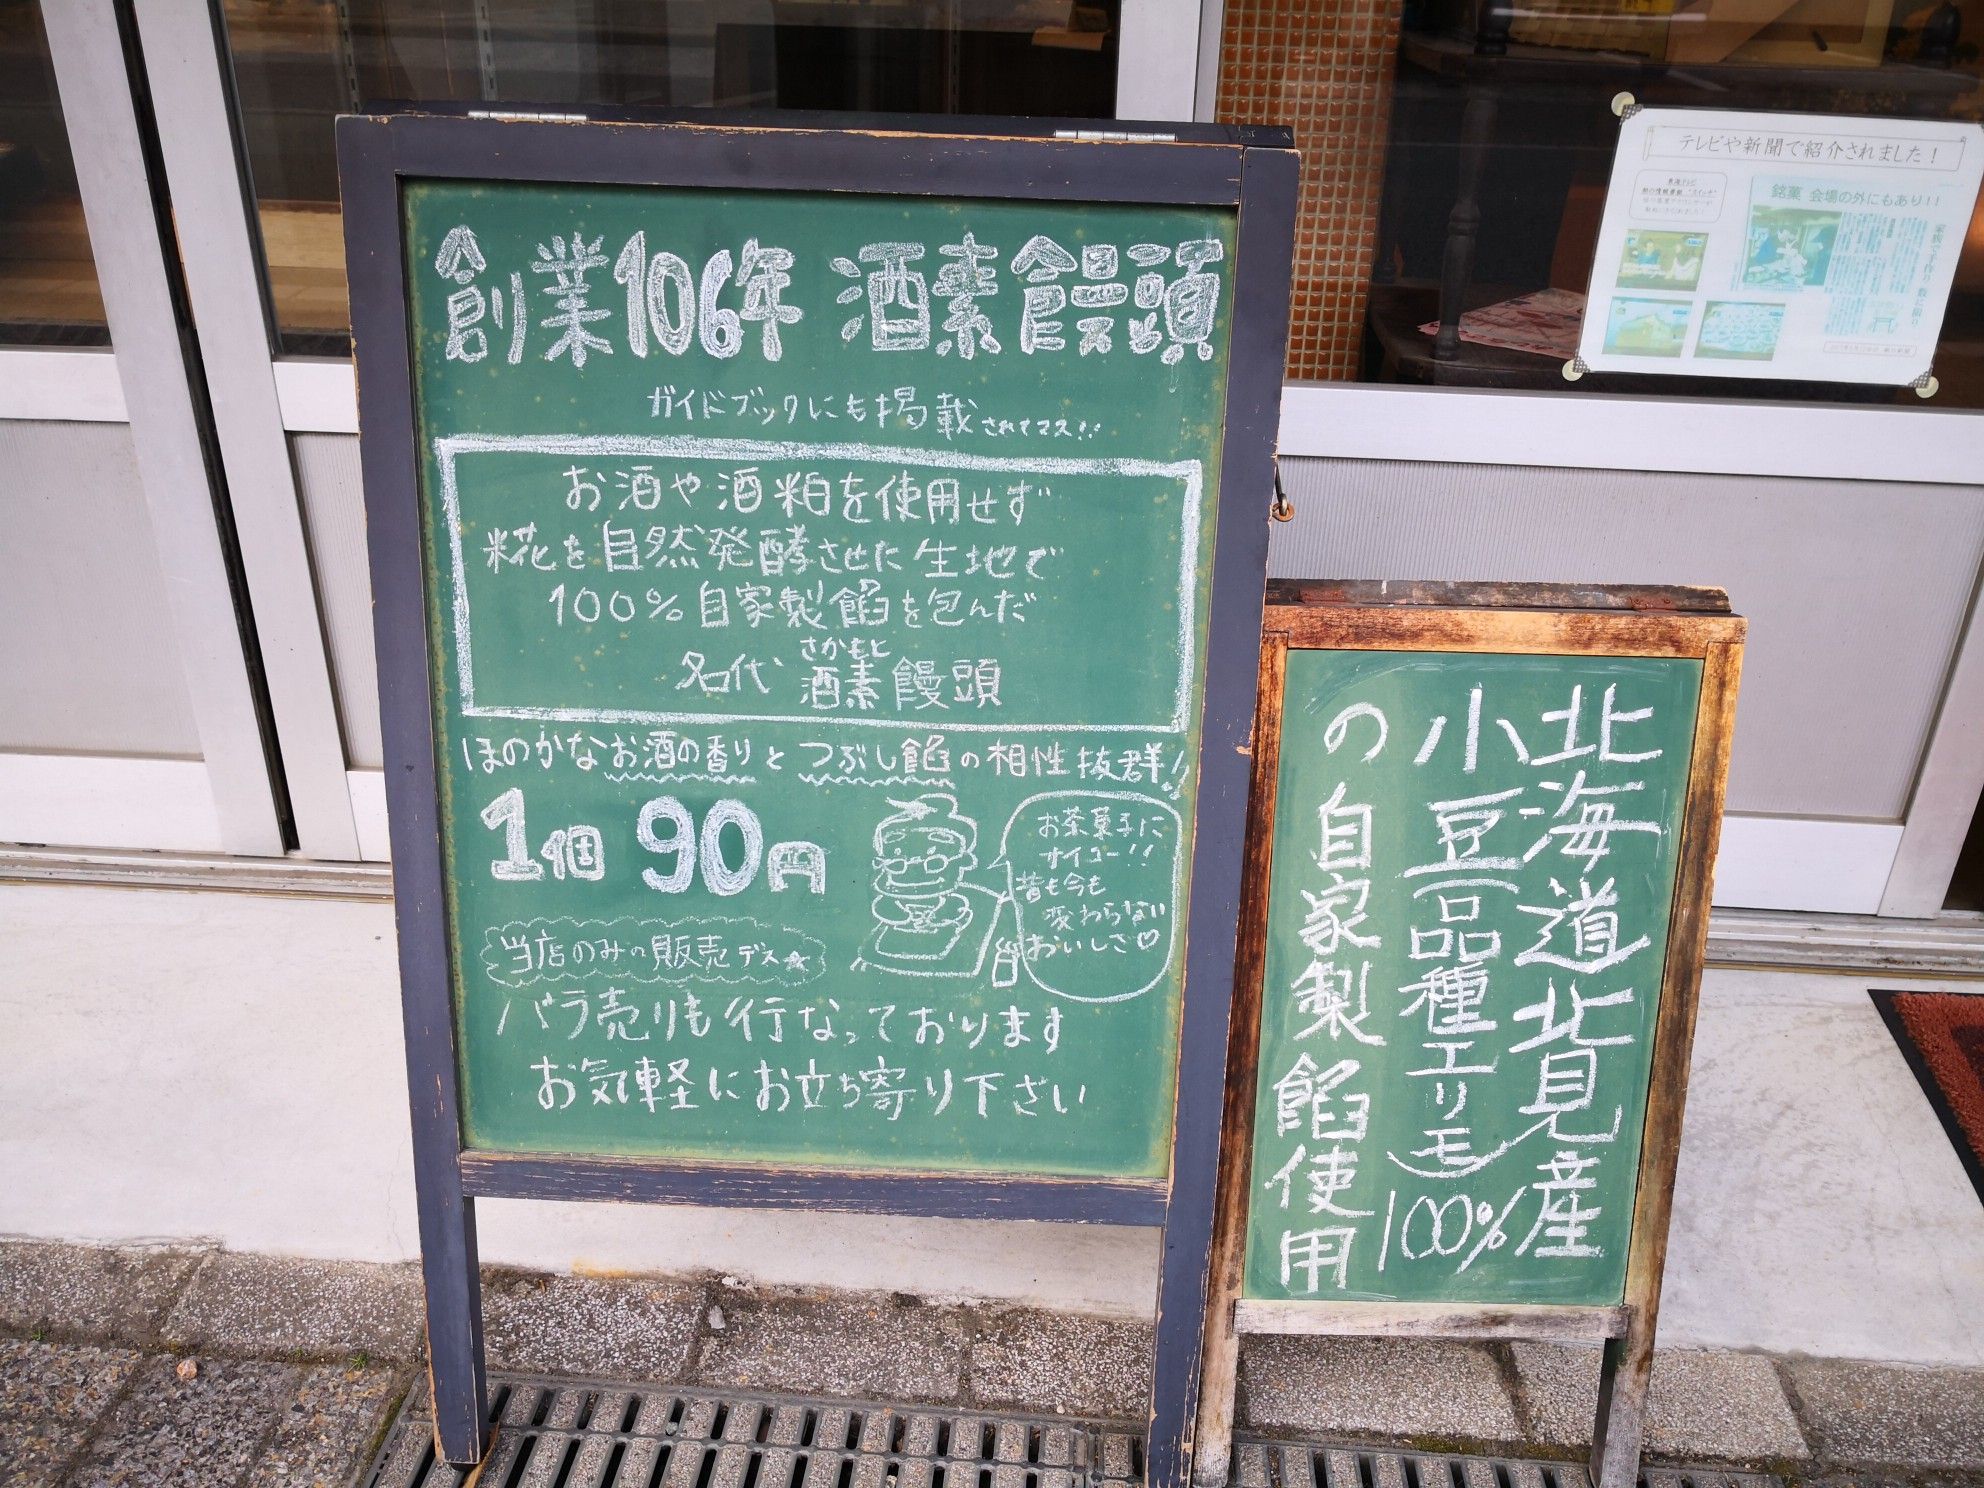 創業106年 酒素饅頭
ガイドブックにも掲載されてマス!!
お酒や酒粕を使用せず
糀を自然発酵させた生地で
100%自家製餡を包んだ
さかもと
名代 酒素饅頭
ほのかなお酒の香りとつぶし餡の相性抜群!!
1個 90円
お茶菓子に
ナイスー!!
昔も今も
変わらない
おいしさ♡
当店のみの販売デス★
バラ売りも行なっております
お気軽にお立ち寄り下さい
北海道北見産
小豆(品種エリモ)100%
の自家製餡使用
テレビや新聞で紹介されました!
東海テレビ
銘菓 会場の外にもあり!!